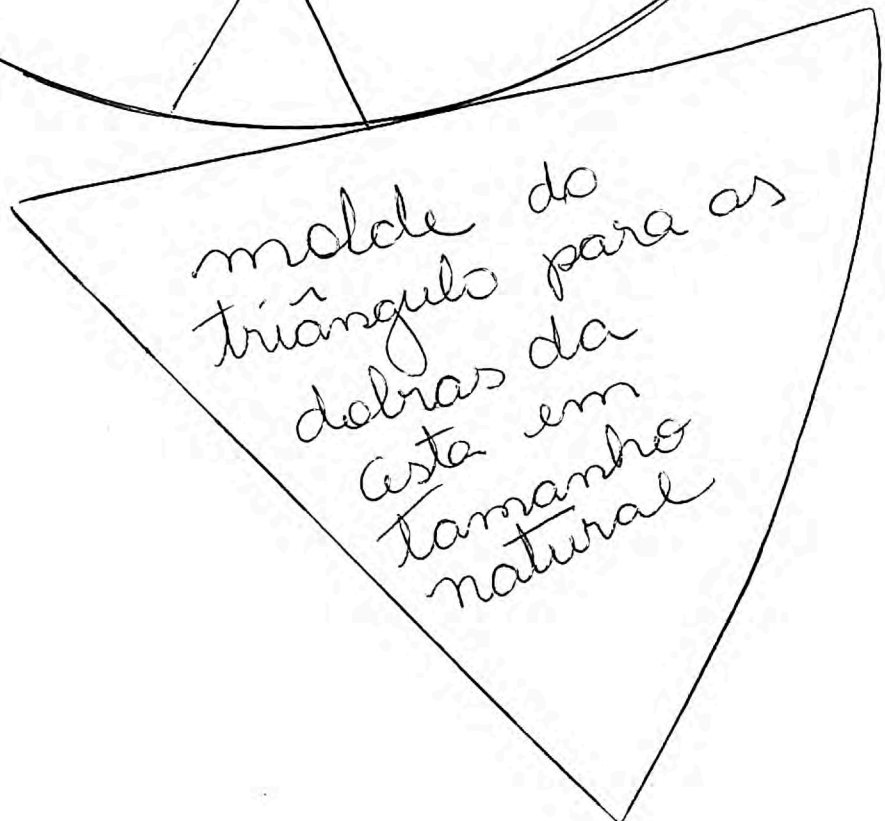 molde do
triângulo para as
dobras da
cesta em
tamanho
natural